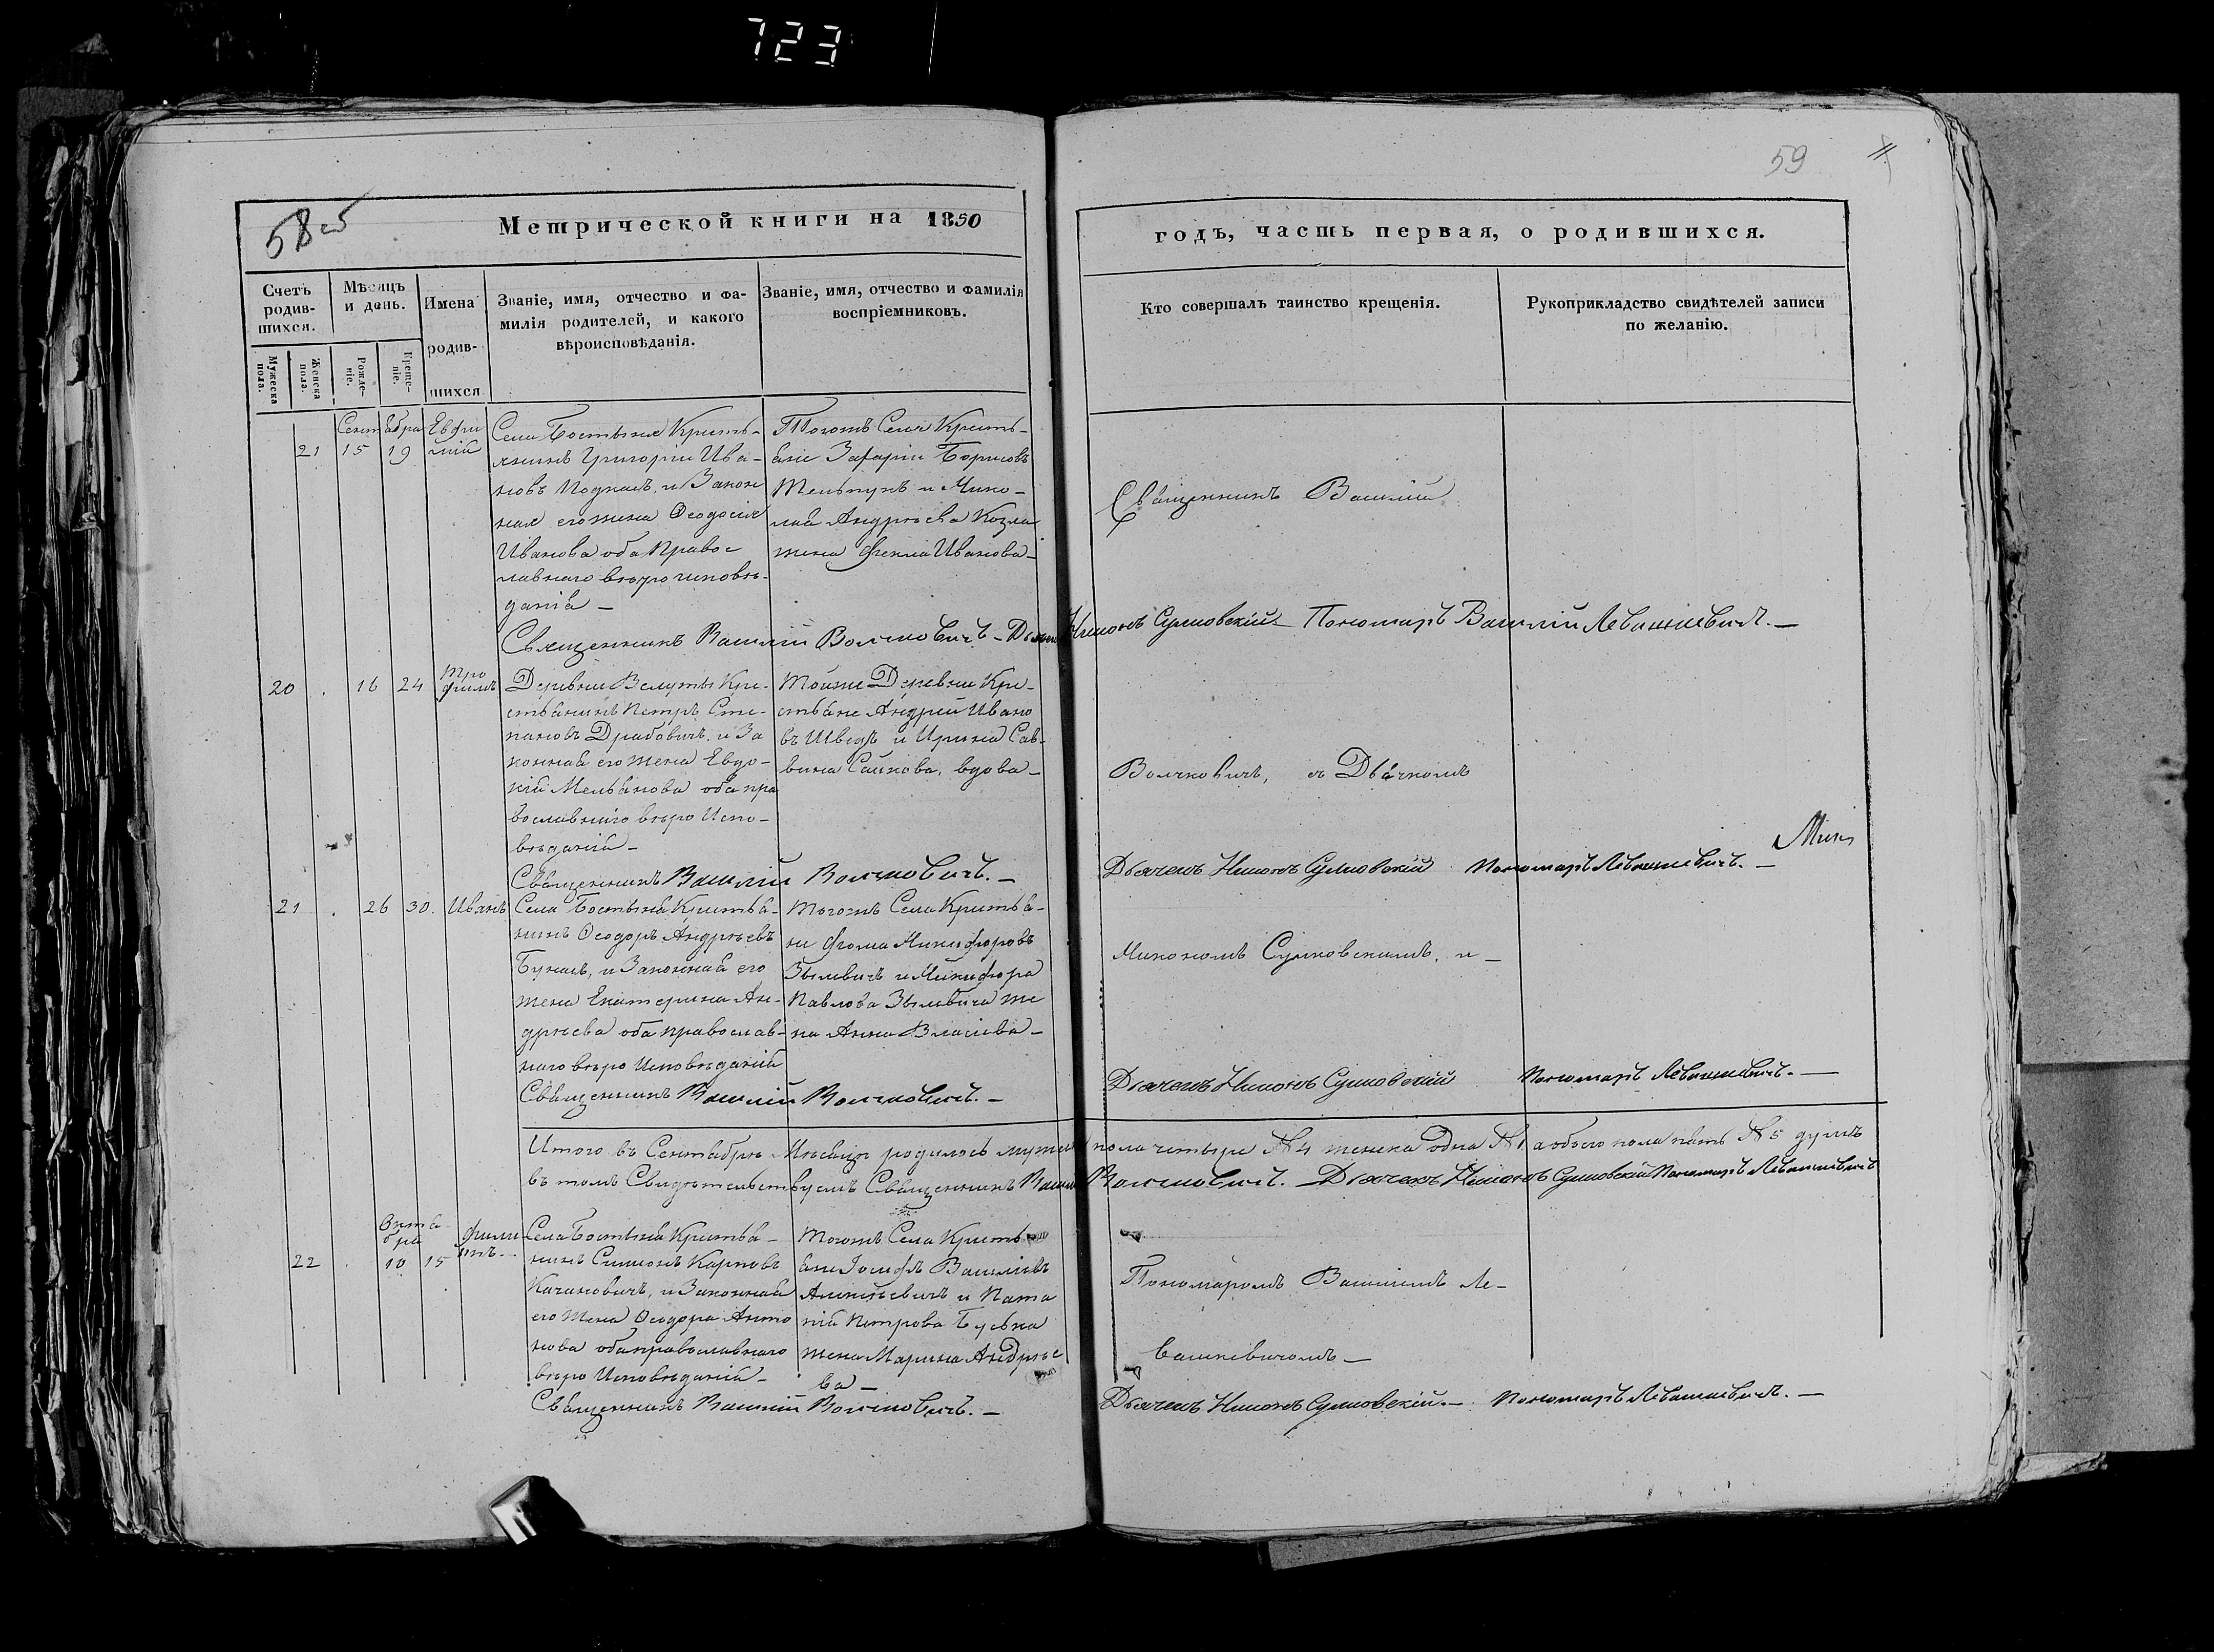 723
59
58
Метрической книги на 1850
годъ, часть первая, о родившихся.
Счетъ родив-шихся.
Мѣсяцъ и день.
Имена родив-шихся
Званіе, имя, отчество и фа-
милія родителей, и какого
вѣроисповѣданія.
Званіе, имя, отчество и фамилія
воспріемниковъ.
Кто совершалъ таинство крещенія.
Рукоприкладство свидѣтелей записи
по желанію.
Мужеска пола.
Женска пола.
Рожде-ніе.
Креще-ніе.
Сентября
21 15 19
Села Бостыня Кресть-
янинъ Григорій Ива-
новъ и Закон
ная его жена Ѳеодосія
Иванова оба Право
славнаго вѣроисповѣ-
данія —
Тогожъ Села Кресть-
яне Захарій Борисовъ
и Нико-
лая Андреева Козла
жена Фекла Иванова —
Священникъ Василій
Священникъ Василій Волчковичъ — Никонъ Сулковскій — Пономарь Василій Левашкевичъ. —
20 16 24 Тро
фимъ
Деревни Велуты Кре-
стьянинъ Петръ Сте-
пановъ Драбовичъ, и За
конная его жена Евдо-
кія Мельянова оба пра
вославнаго вѣро Испо-
вѣданія —
Тойже Деревни Кре-
стьяне Андрей Ивано
въ Шведъ и Ирина Сав-
вина Сашкова, вдова —
Волчковичъ, съ Дьячкомъ
Священникъ Василій Волчковичъ. —
Дьячекъ Никонъ Сулковскій Пономарь Левашкевичъ. —
21 26 30. Иванъ
Села Бостыня Крестья-
нинъ Ѳеодоръ Андреевъ
и Законная его
жена Екатерина Ан-
дреева оба православ-
наго вѣро Исповѣданія
Тогожъ Села Крестья-
не Фома Никифоровъ
и Никифора
Павлова же
на Анна Власіева —
Никономъ Сулковскимъ, и —
Священникъ Василій Волчковичъ. —
Дьячекъ Никонъ Сулковскій Пономарь Левашкевичъ. —
Итого въ Сентябрѣ Мѣсяцѣ родилось мужеска пола четыре №4 женска одна №1 а обоего пола пять №5 душъ
въ томъ Свидѣтельствуемъ Священникъ Василій Волчковичъ. Дьячекъ Никонъ Сулковскій Пономарь Левашкевичъ
Октя
бря
22 10 15
Села Бостыня Крестья-
нинъ Симеонъ Карповъ
Качановичъ, и Законная
его жена Ѳеодора Анто
нова оба православнаго
вѣро Исповѣданія —
Тогожъ Села Кресть
яне Іосифъ Василіевъ
Алексѣевичъ и
Петрова
жена Марина Андрѣе
ва —
Пономаремъ Василіемъ Ле-
вашкевичемъ —
Священникъ Василій Волчковичъ. —
Дьячекъ Никонъ Сулковскій. — Пономарь Левашкевичъ. —